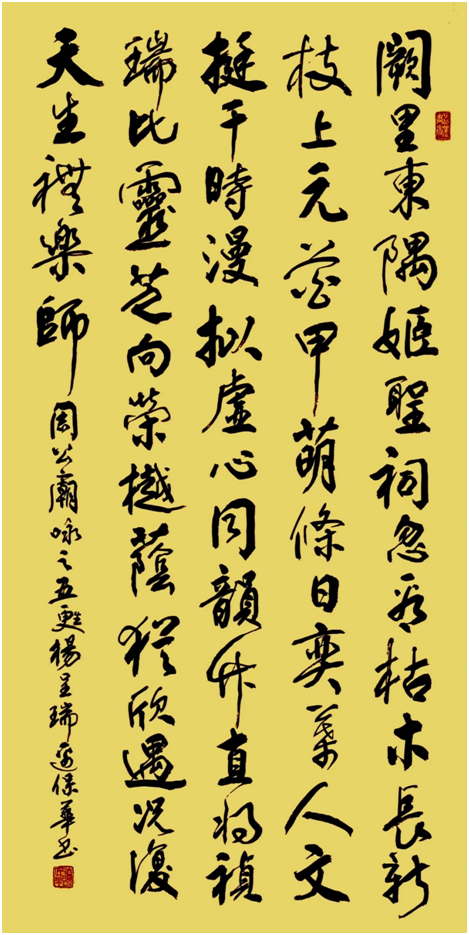 闕里東隅姬聖祠忽看枯木長新
枝上元花甲萌條日奕葉人文
挺干時漫拟虛心同韻竹直將禎
瑞比靈芝向榮樾蔭猶欣遇況復
天生禮樂師
周公廟咏之五甦楊呈瑞 保華書